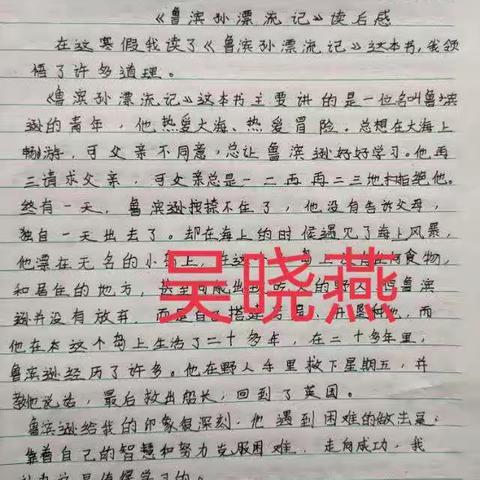 《鲁滨孙漂流记》读后感
在这寒假我读了《鲁滨孙漂流记》这本书,我领
悟了许多道理。
《鲁滨孙漂流记》这本书主要讲的是一位名叫鲁滨
逊的青年,他热爱大海、热爱冒险。总想在大海上
畅游,可父亲不同意,总让鲁滨逊好好学习。他再
三请求父亲,可父亲总是一二再再二三地拒绝他。
终有一天,鲁滨逊按捺不住了,他没有告诉父母,
独自一天出去了。却在海上的时候遇见了海上风暴,
他漂在无名的小岛上,在这 岛上 食物,
和居住的地方,甚至 出 吃人的野人 但鲁滨
逊并没有放弃,而是自己搭建 ,而
他在在这个岛上生活了二十多年,在二十多年里,
鲁滨逊经历了许多。他在野人手里救下星期五,并
教他说话,最后救出船长,回到了英国。
鲁滨逊给我的印象很深刻,他遇到困难的做法是:
靠着自己的智慧和努力克服困难,走向成功,我
认为这是值得学习的。
吴晓燕